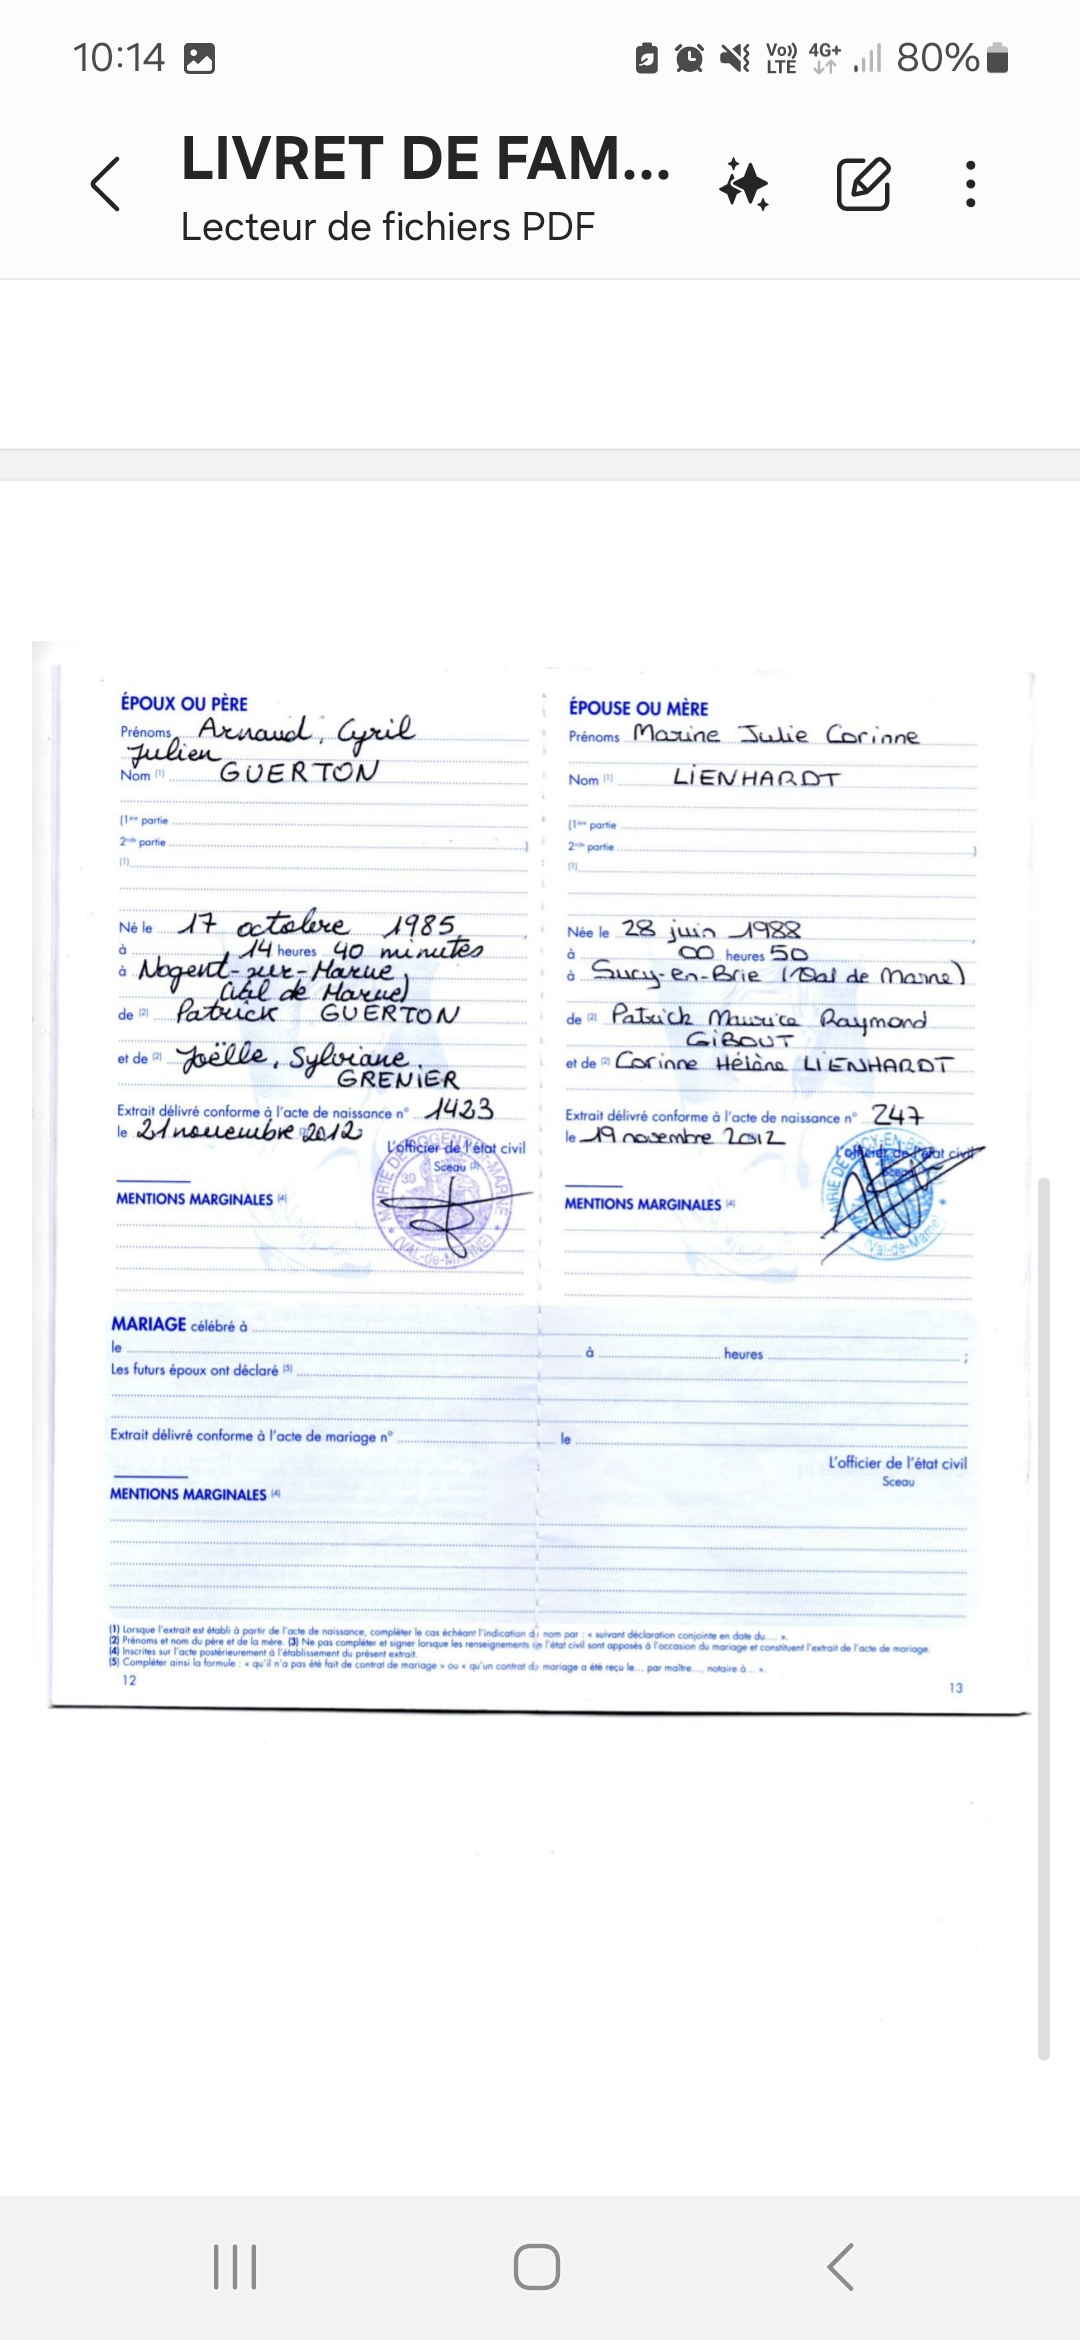 10:14
Vo)) LTE 4G+ 80%
LIVRET DE FAM...
Lecteur de fichiers PDF
ÉPOUX OU PÈRE
Prénoms Arnaud, Cyril
Julien
Nom (1) GUERTON
(1ère partie
2nde partie )
(1)
Né le 17 octobre 1985
à 14 heures 40 minutes
à Nogent-sur-Marne,
(Val de Marne)
de (2) Patrick GUERTON
et de (2) Joëlle, Sylviane
GRENIER
Extrait délivré conforme à l'acte de naissance n° 1423
le 21 novembre 2012
L'officier de l'état civil
Sceau (3)
MENTIONS MARGINALES (4)
ÉPOUSE OU MÈRE
Prénoms Marine Julie Corinne
Nom (1) LIENHARDT
(1ère partie
2nde partie )
(1)
Née le 28 juin 1988
à 00 heures 50
à Sucy-en-Brie (Val de Marne)
de (2) Patrick Maurice Raymond
GIBOUT
et de (2) Corinne Hélène LIENHARDT
Extrait délivré conforme à l'acte de naissance n° 247
le 19 novembre 2012
L'officier de l'état civil
Sceau
(Val-de-Marne)
MENTIONS MARGINALES (4)
MARIAGE célébré à
le à heures ;
Les futurs époux ont déclaré (5)
Extrait délivré conforme à l'acte de mariage n° le
L'officier de l'état civil
Sceau
MENTIONS MARGINALES (4)
(1) Lorsque l'extrait est établi à partir de l'acte de naissance, compléter le cas échéant l'indication du nom par : « suivant déclaration conjointe en date du.... ».
(2) Prénoms et nom du père et de la mère. (3) Ne pas compléter et signer lorsque les renseignements en l'état civil sont apposés à l'occasion du mariage et constituent l'extrait de l'acte de mariage.
(4) Inscrites sur l'acte postérieurement à l'établissement du présent extrait.
(5) Compléter ainsi la formule : « qu'il n'a pas été fait de contrat de mariage » ou « qu'un contrat de mariage a été reçu le... par maître..., notaire à... ».
12
13